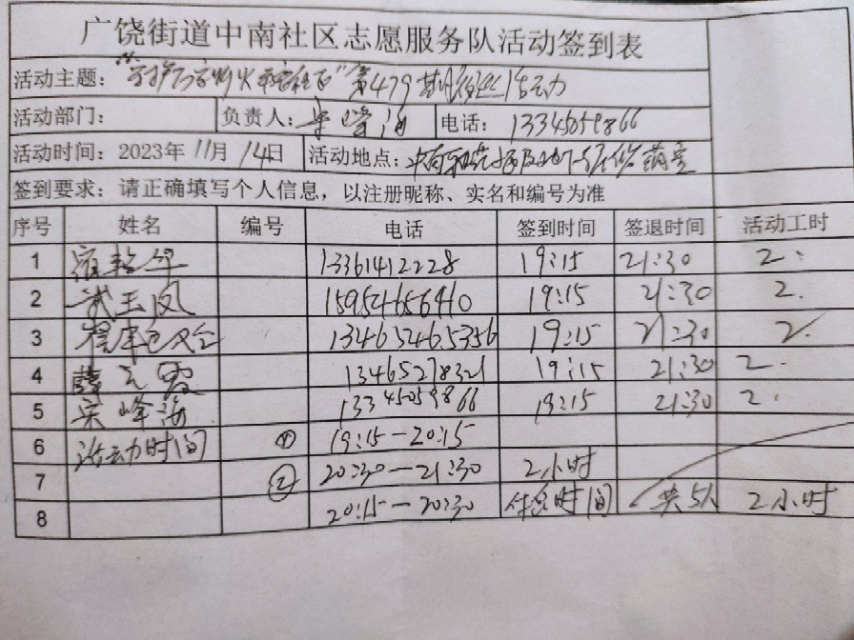 广饶街道中南社区志愿服务队活动签到表
活动主题：“守护万家灯火 平安社区”第479期 活动
活动部门： 负责人：宋峰海 电话：13345059866
活动时间：2023年11月14日 活动地点：中南
签到要求：请正确填写个人信息，以注册昵称、实名和编号为准
序号 姓名 编号 电话 签到时间 签退时间 活动工时
1 13361412228 19:15 21:30 2.
2 武玉凤 15954656410 19:15 21:30 2.
3 程 134654465356 19:15 21:30 2.
4 薛云霞 13465278321 19:15 21:30 2.
5 宋峰海 13345059866 19:15 21:30 2.
6 活动时间 ① 19:15—20:15
7 ② 20:30—21:30 2小时
8 20:15—20:30 休息时间 共5人 2小时